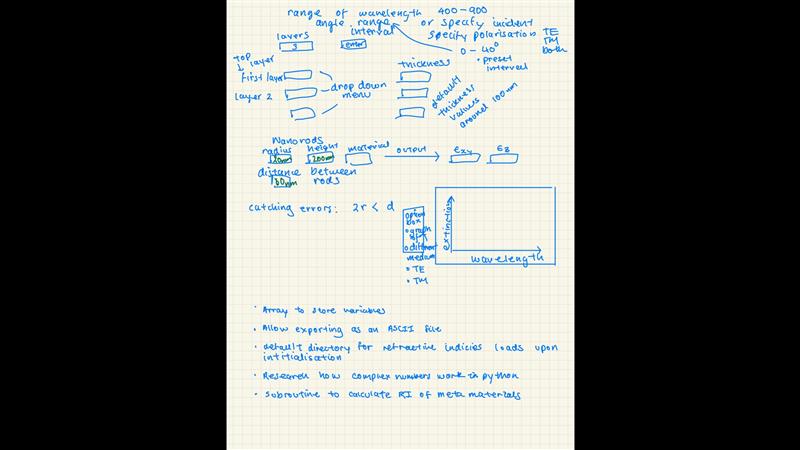 range of wavelength 400-900
angle range or specify incident
interval specify polarisation TE
TM
both
layers
3
enter
0-40°
• preset
interval
TOP
layer
thickness
First layer
layer 2
drop down
menu
default
thickness
values
around 100nm
Nanorods
radius height material
200nm
OUTPUT
Exy Ez
distance between
rods
catching errors: 2r < d
option
box
• graph
• different
medium
• TE
• TM
extinction
wavelength
• Array to store variables
• Allow exporting as an ASCII file
• default directory for refractive indicies loads upon
intitialisation
• Research how complex numbers work in python
• subroutine to calculate RI of meta materials